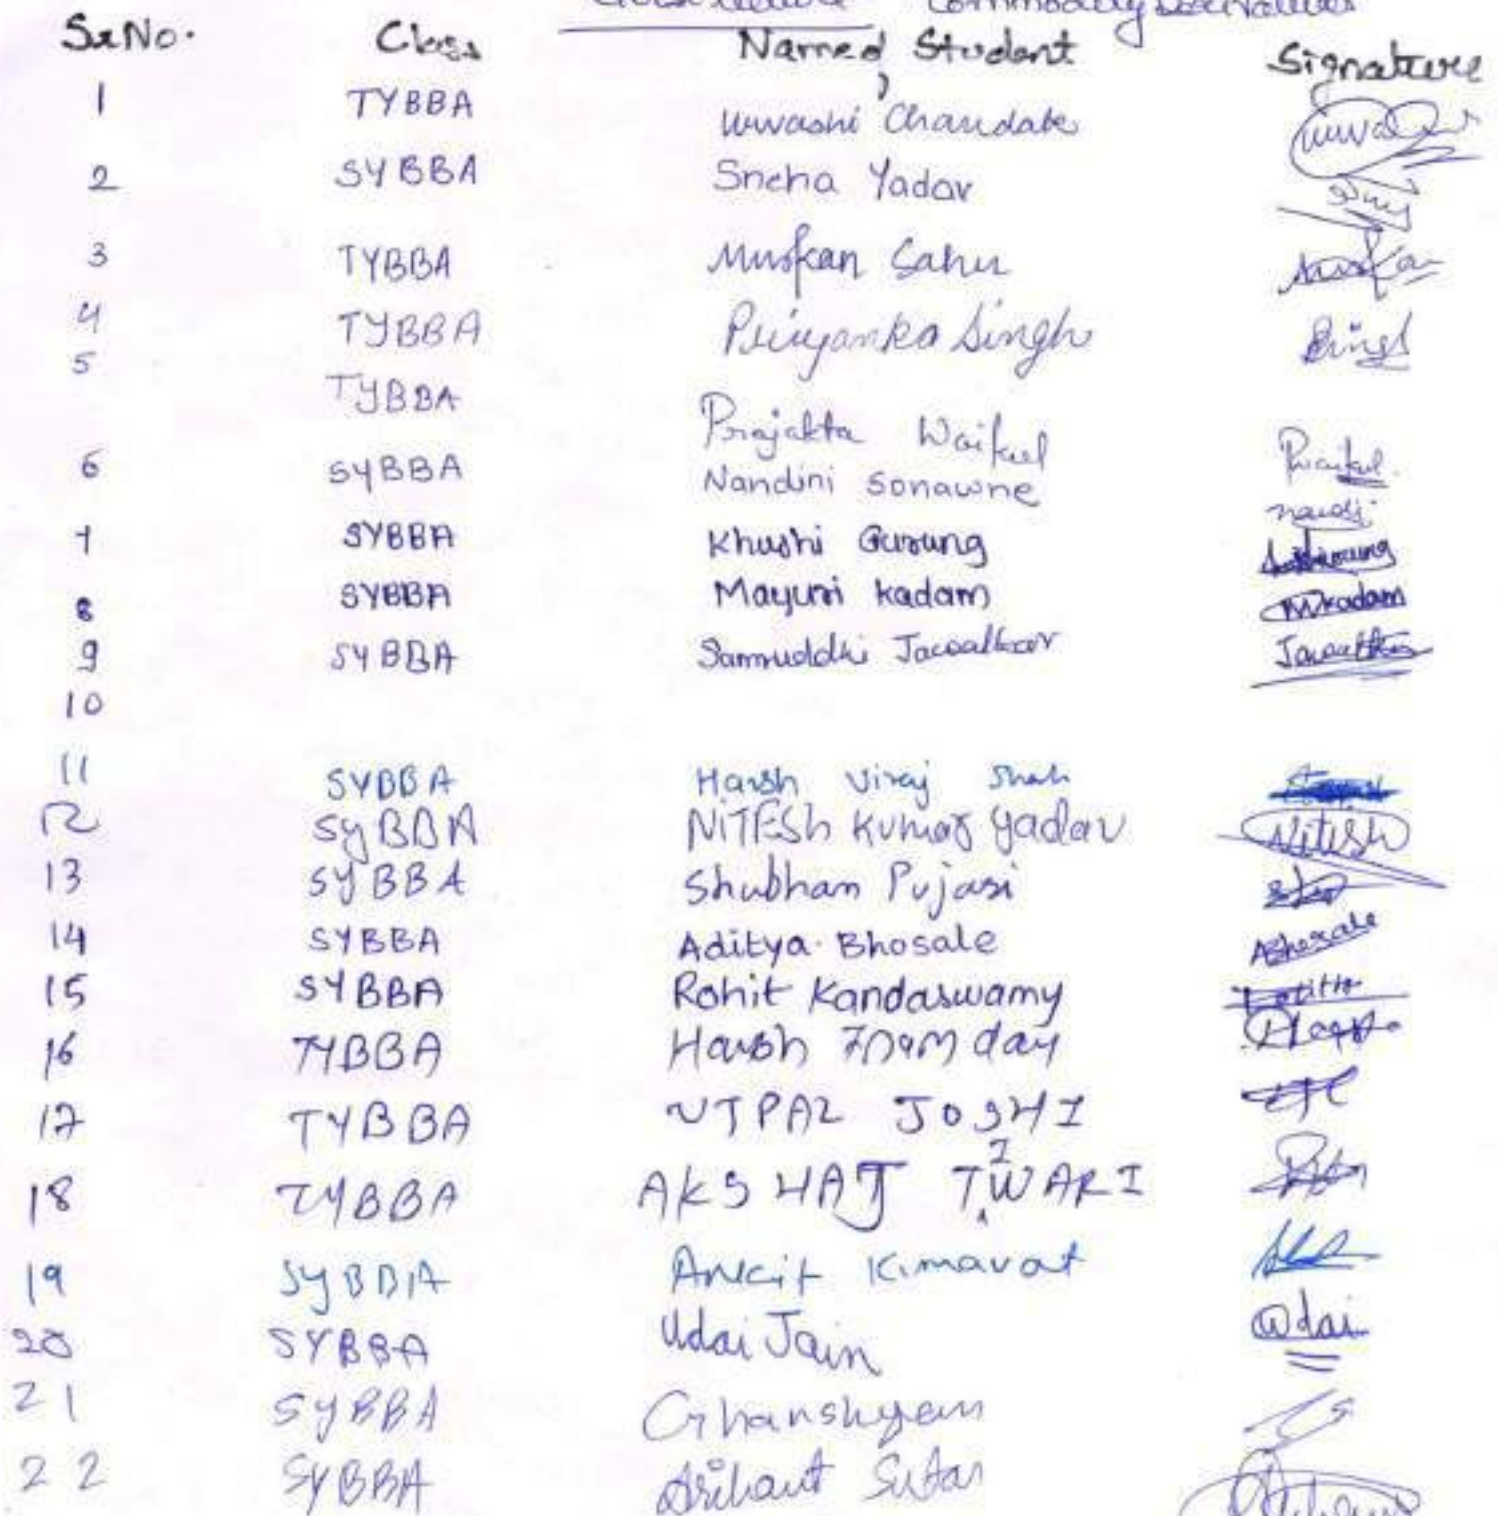 Guest lecture Commodity Derivatives
Sr No. Class Name of Student Signature
1 TYBBA Urvashi Chandate
2 SYBBA Sneha Yadav
3 TYBBA Muskan Sahu Muskan
4 TYBBA Priyanka Singh Singh
5 TYBBA Prajakta Waikul Pwaikul
6 SYBBA Nandini Sonawne
7 SYBBA Khushi Gurung
8 SYBBA Mayuri Kadam Mkadam
9 SYBBA Samruddhi
10
11 SYBBA Harsh Viraj Shah
12 SYBBA NITESh Kumar Yadav Nitesh
13 SYBBA Shubham Pujari
14 SYBBA Aditya. Bhosale ABhosale
15 SYBBA Rohit Kandaswamy
16 TYBBA Harsh
17 TYBBA UTPAL JOSHI
18 TYBBA AKSHAJ TIWARI
19 SYBBA Ankit Kimavat
20 SYBBA Udai Jain Udai
21 SYBBA Ghanshyam
22 SYBBA Arihant Sutar